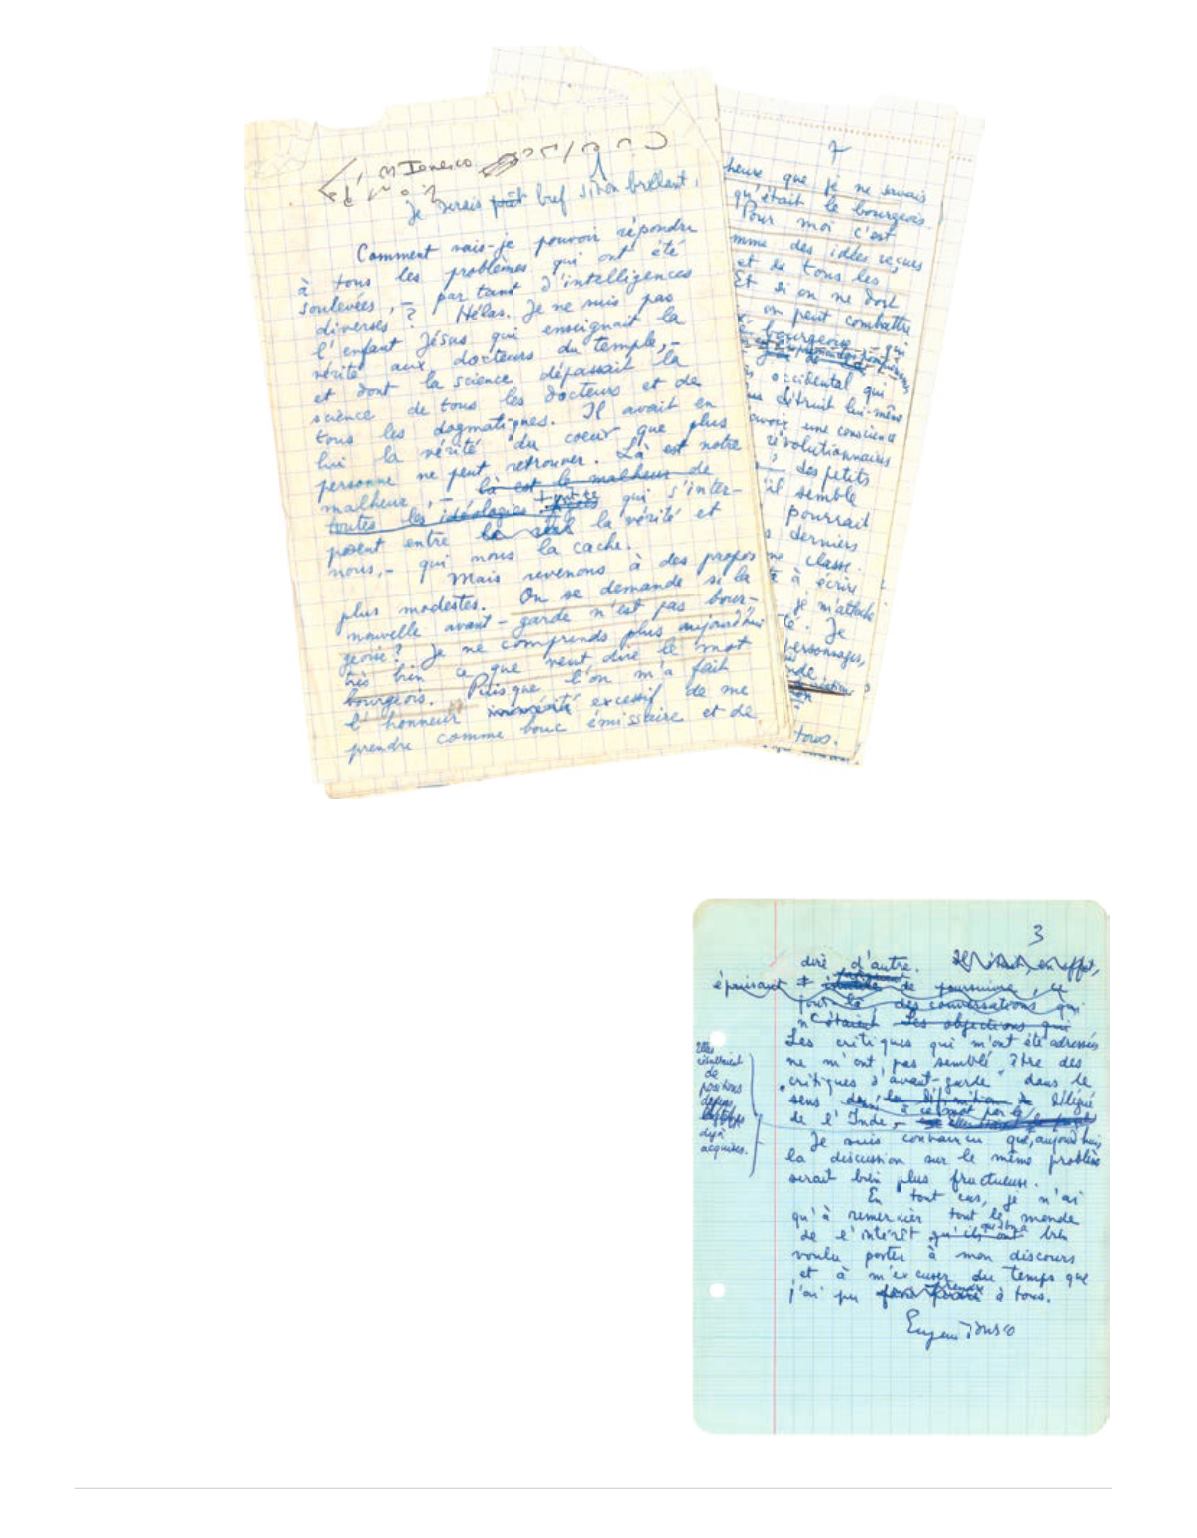 M Ionesco
Je serais bref sinon brillant.
Comment vais-je pouvoir répondre
à tous les problèmes qui ont été
soulevées, – par tant d'intelligences
diverses ? Hélas. Je ne suis pas
l'enfant Jésus qui enseignait la
vérité aux docteurs du temple, –
et dont la science dépassait la
science de tous les docteurs et de
tous les dogmatiques. Il avait en
lui la vérité du coeur que plus
personne ne peut retrouver. Là est notre
malheur, – là est le malheur de
toutes les idéologies qui s'inter-
posent entre la vérité et
nous, – qui nous la cache.
Mais revenons à des propos
plus modestes. On se demande si la
nouvelle avant-garde n'est pas bour-
geoise ? Je ne comprends plus aujourd'hui
très bien ce que veut dire le mot
bourgeois. Puisque l'on m'a fait
l'honneur immérité excessif de me
prendre comme bouc émissaire et de
7
heure que je ne savais
qu'était le bourgeois.
Pour moi c'est
mme des idées reçues
et de tous les
Et si on ne doit
on peut combattre
bourgeoise – qui
occidental qui
détruit lui-même
avoir une conscience
révolutionnaires
des petits
'il semble
pourrait
s derniers
me classe.
à écrire
je m'attache
té. Je
personnages,
nde
tous.
3
dire d'autre. Il était, en effet,
épuisant inutile de poursuivre, ce
jour là des conversations qui
n'étaient Les objections qui
Les critiques qui m'ont été adressées
ne m'ont pas semblé être des
"critiques d'avant-garde" dans le
sens donné à ce mot par le délégué
de l'Inde, –
Elles
résultaient
de
positions
depuis
déjà
acquises.
Je suis convaincu que, aujourd'hui,
la discussion sur le même problème
serait bien plus fructueuse.
En tout cas, je n'ai
qu'à remercier tout le monde
de l'intérêt qu'ils ont bien
voulu porter à mon discours
et à m'excuser du temps que
j'ai pu prendre à tous.
Eugène Ionesco